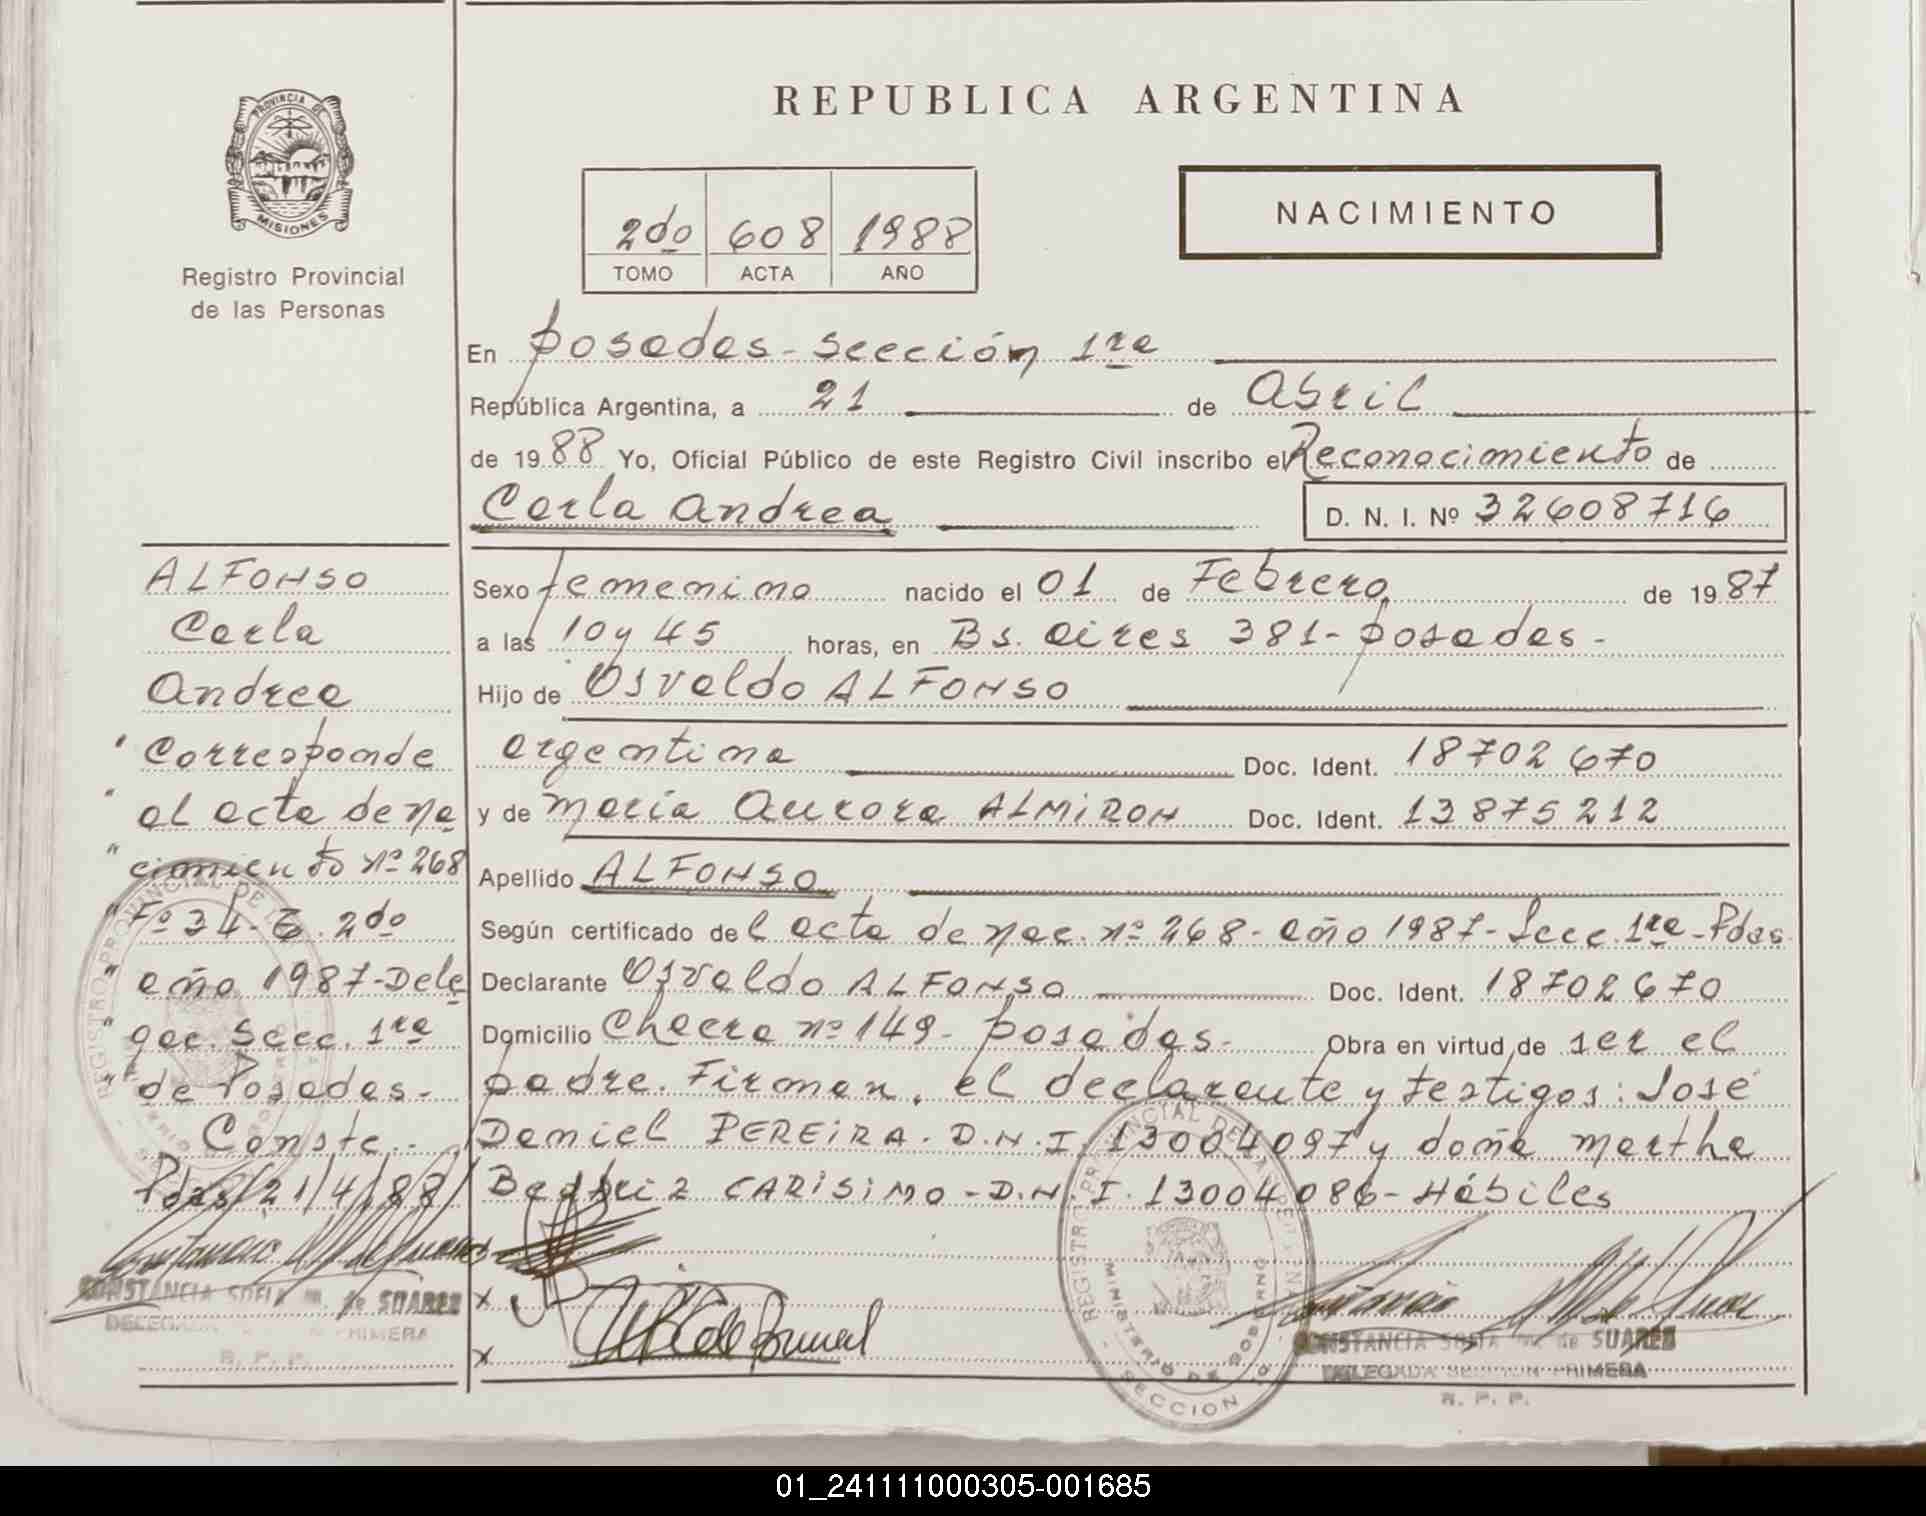 PROVINCIA DE
MISIONES
Registro Provincial
de las Personas
REPUBLICA ARGENTINA
2do 608 1988
TOMO ACTA AÑO
NACIMIENTO
En Posadas - Sección 1ra
República Argentina, a 21 de Abril
de 1988 Yo, Oficial Público de este Registro Civil inscribo el Reconocimiento de
Carla Andrea
D. N. I. Nº 32608716
Sexo femenino nacido el 01 de Febrero de 1987
a las 10 y 45 horas, en Bs. Aires 381 - Posadas -
Hijo de Osvaldo ALFONSO
argentina Doc. Ident. 18702670
y de María Aurora ALMIRON Doc. Ident. 13875212
Apellido ALFONSO
Según certificado del acta de nac. nº 268 - año 1987 - Secc. 1ra - Pdas.
Declarante Osvaldo ALFONSO Doc. Ident. 18702670
Domicilio Chacra nº 149 - Posadas - Obra en virtud de ser el
padre. Firman, el declarante y testigos: José
Daniel PEREIRA - D.N.I. 13004097 y doña Martha
Beatriz CARISIMO - D.N.I. 13004086 - Hábiles
ALFONSO
Carla
Andrea
"Corresponde
"al acta de na
"cimiento nº 268
"Fº 34 - T. 2do
"año 1987 - Dele
"gac. Secc. 1ra
"de Posadas -
Conste. -
Pdas/21/4/88/
CONSTANCIA SOFIA M. de SUAREZ
DELEGADA SECCION PRIMERA
R. P. P.
x
x
REGISTRO PROVINCIAL DE LAS PERSONAS
MINISTERIO DE GOBIERNO
SECCION 1º
CONSTANCIA SOFIA M. de SUAREZ
DELEGADA SECCION PRIMERA
R. P. P.
01_241111000305-001685